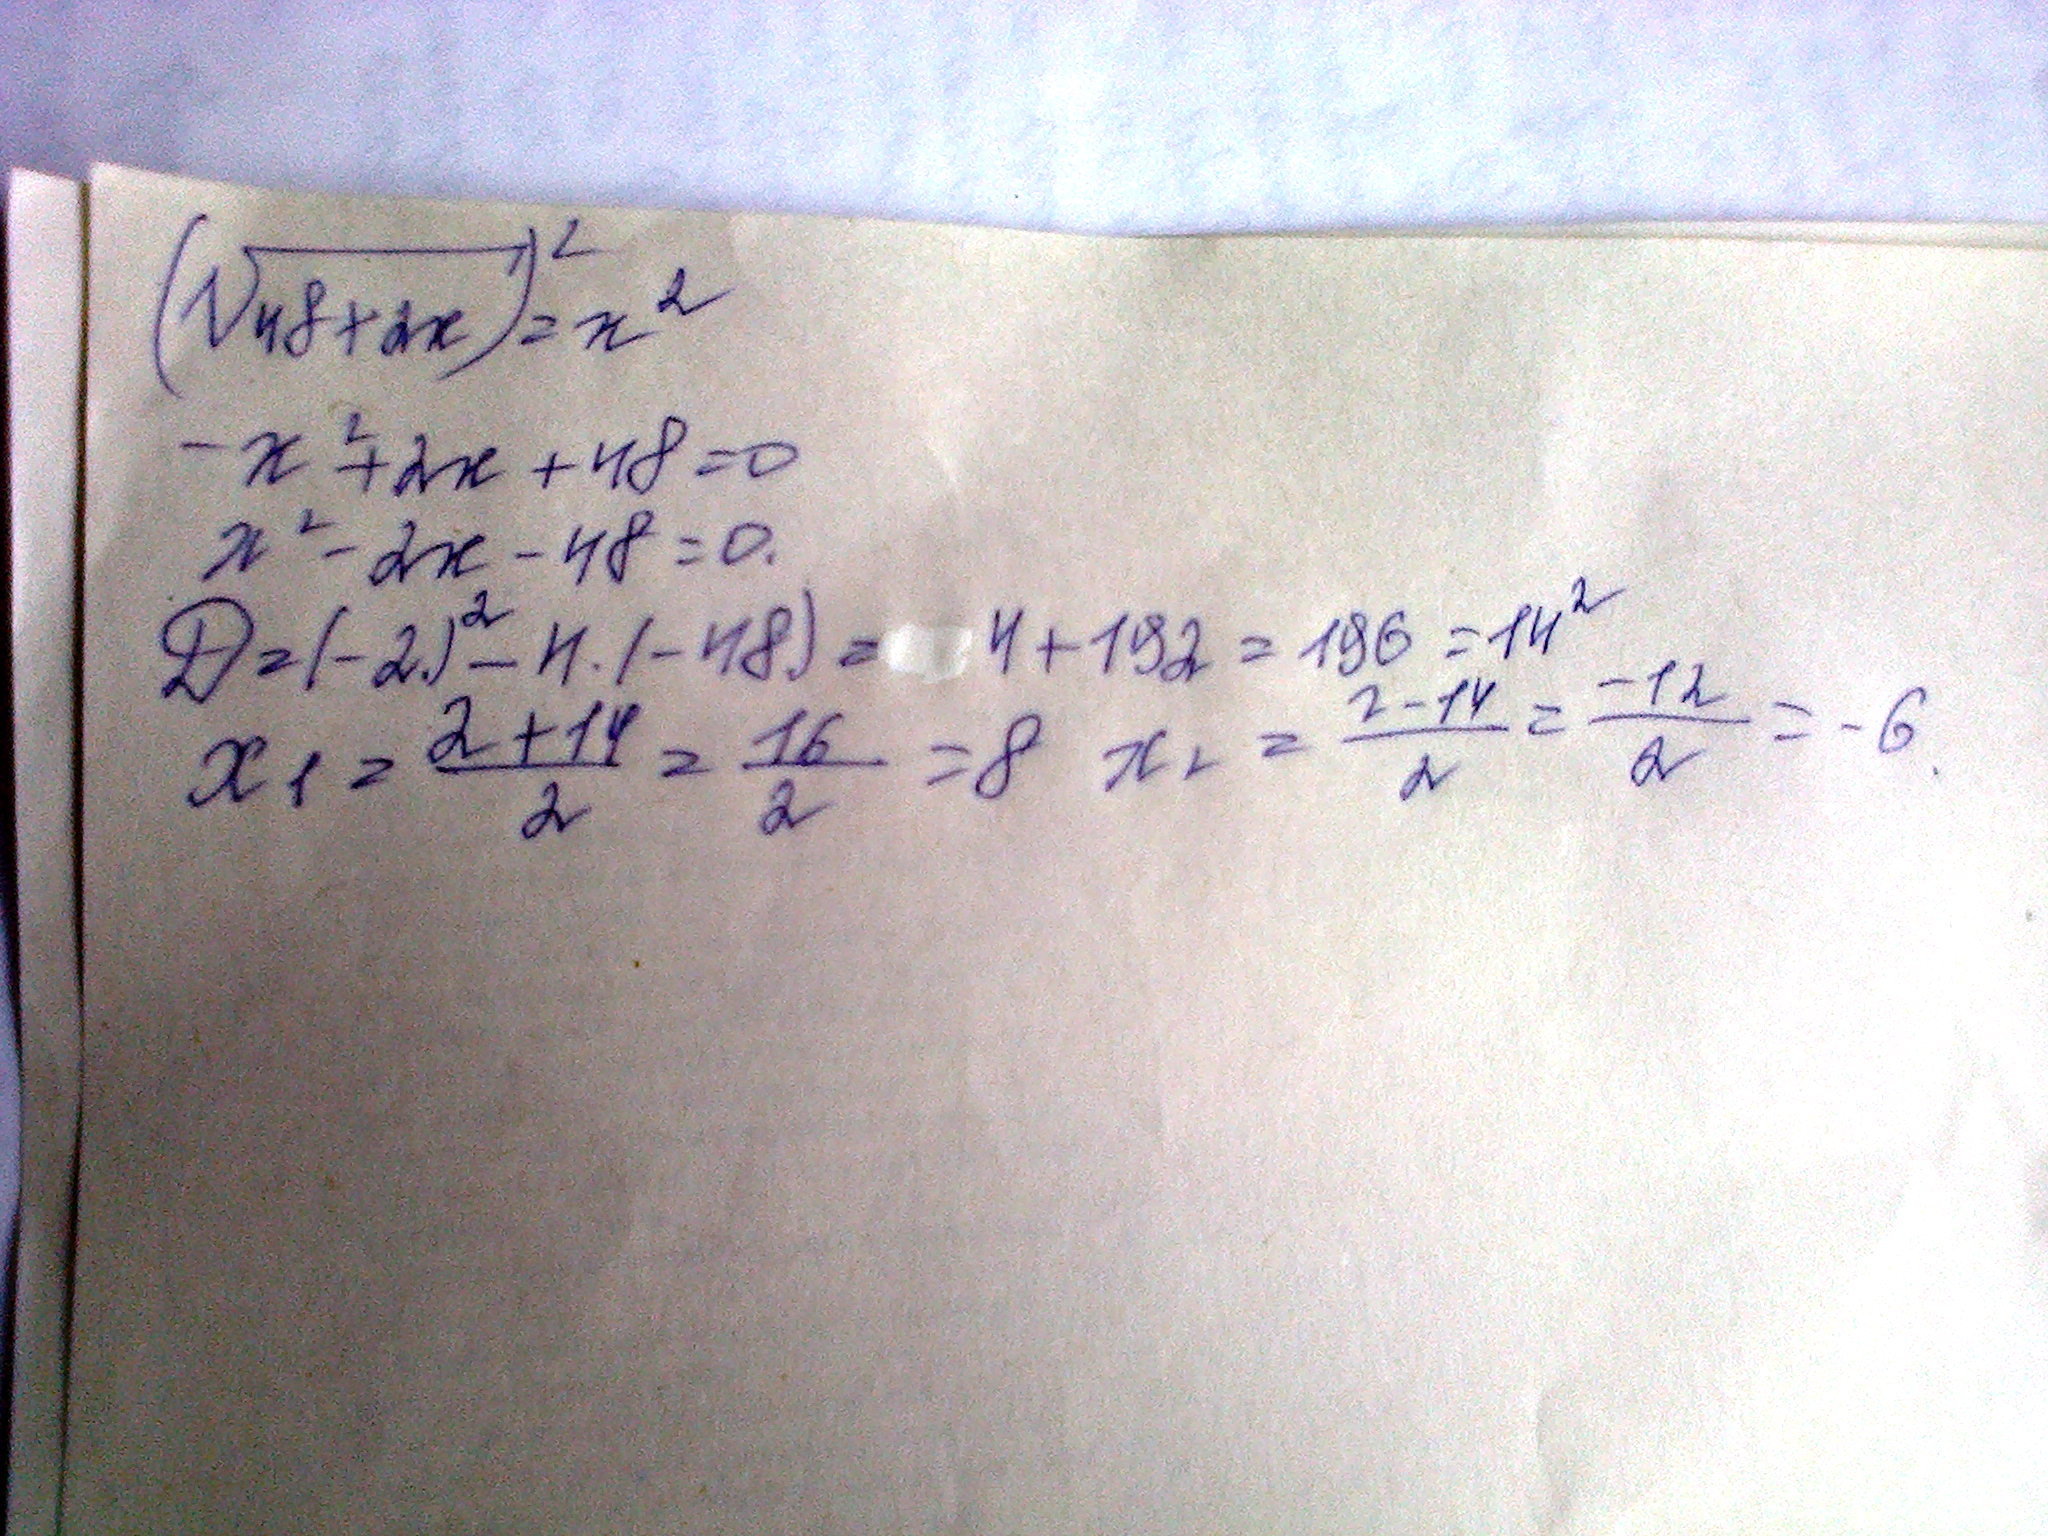 (√48+2x)² = x²
-x²+2x+48=0
x²-2x-48=0.
D=(-2)²-4·(-48)= 4+192=196=14²
x₁ = (2+14)/2 = 16/2 = 8 x₂ = (2-14)/2 = -12/2 = -6.